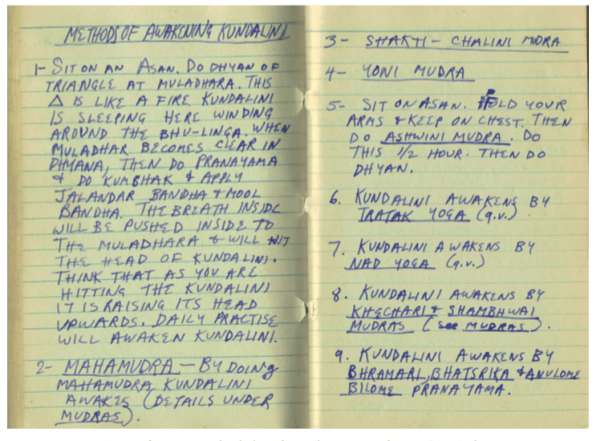 METHODS OF AWAKENING KUNDALINI
1- SIT ON AN ASAN. DO DHYAN OF
TRIANGLE AT MULADHARA. THIS
Δ IS LIKE A FIRE KUNDALINI
IS SLEEPING HERE WINDING
AROUND THE BHU-LINGA. WHEN
MULADHAR BECOMES CLEAR IN
DHYANA, THEN DO PRANAYAMA
& DO KUMBHAK & APPLY
JALANDAR BANDHA & MOOL
BANDHA. THE BREATH INSIDE
WILL BE PUSHED INSIDE TO
THE MULADHARA & WILL HIT
THE HEAD OF KUNDALINI.
THINK THAT AS YOU ARE
HITTING THE KUNDALINI
IT IS RAISING ITS HEAD
UPWARDS. DAILY PRACTISE
WILL AWAKEN KUNDALINI.
2- MAHAMUDRA - BY DOING
MAHAMUDRA KUNDALINI
AWAKES (DETAILS UNDER
MUDRAS).
3- SHAKTI - CHALINI MUDRA
4- YONI MUDRA
5- SIT ON ASAN. FOLD YOUR
ARMS & KEEP ON CHEST. THEN
DO ASHWINI MUDRA. DO
THIS 1/2 HOUR. THEN DO
DHYAN.
6. KUNDALINI AWAKENS BY
TRATAK YOGA (q.v.)
7. KUNDALINI AWAKENS BY
NAD YOGA (q.v.)
8. KUNDALINI AWAKENS BY
KHECHARI & SHAMBHWAI
MUDRAS (see MUDRAS).
9. KUNDALINI AWAKENS BY
BHRAMARI, BHATSRIKA & ANULOME
BILOME PRANAYAMA.